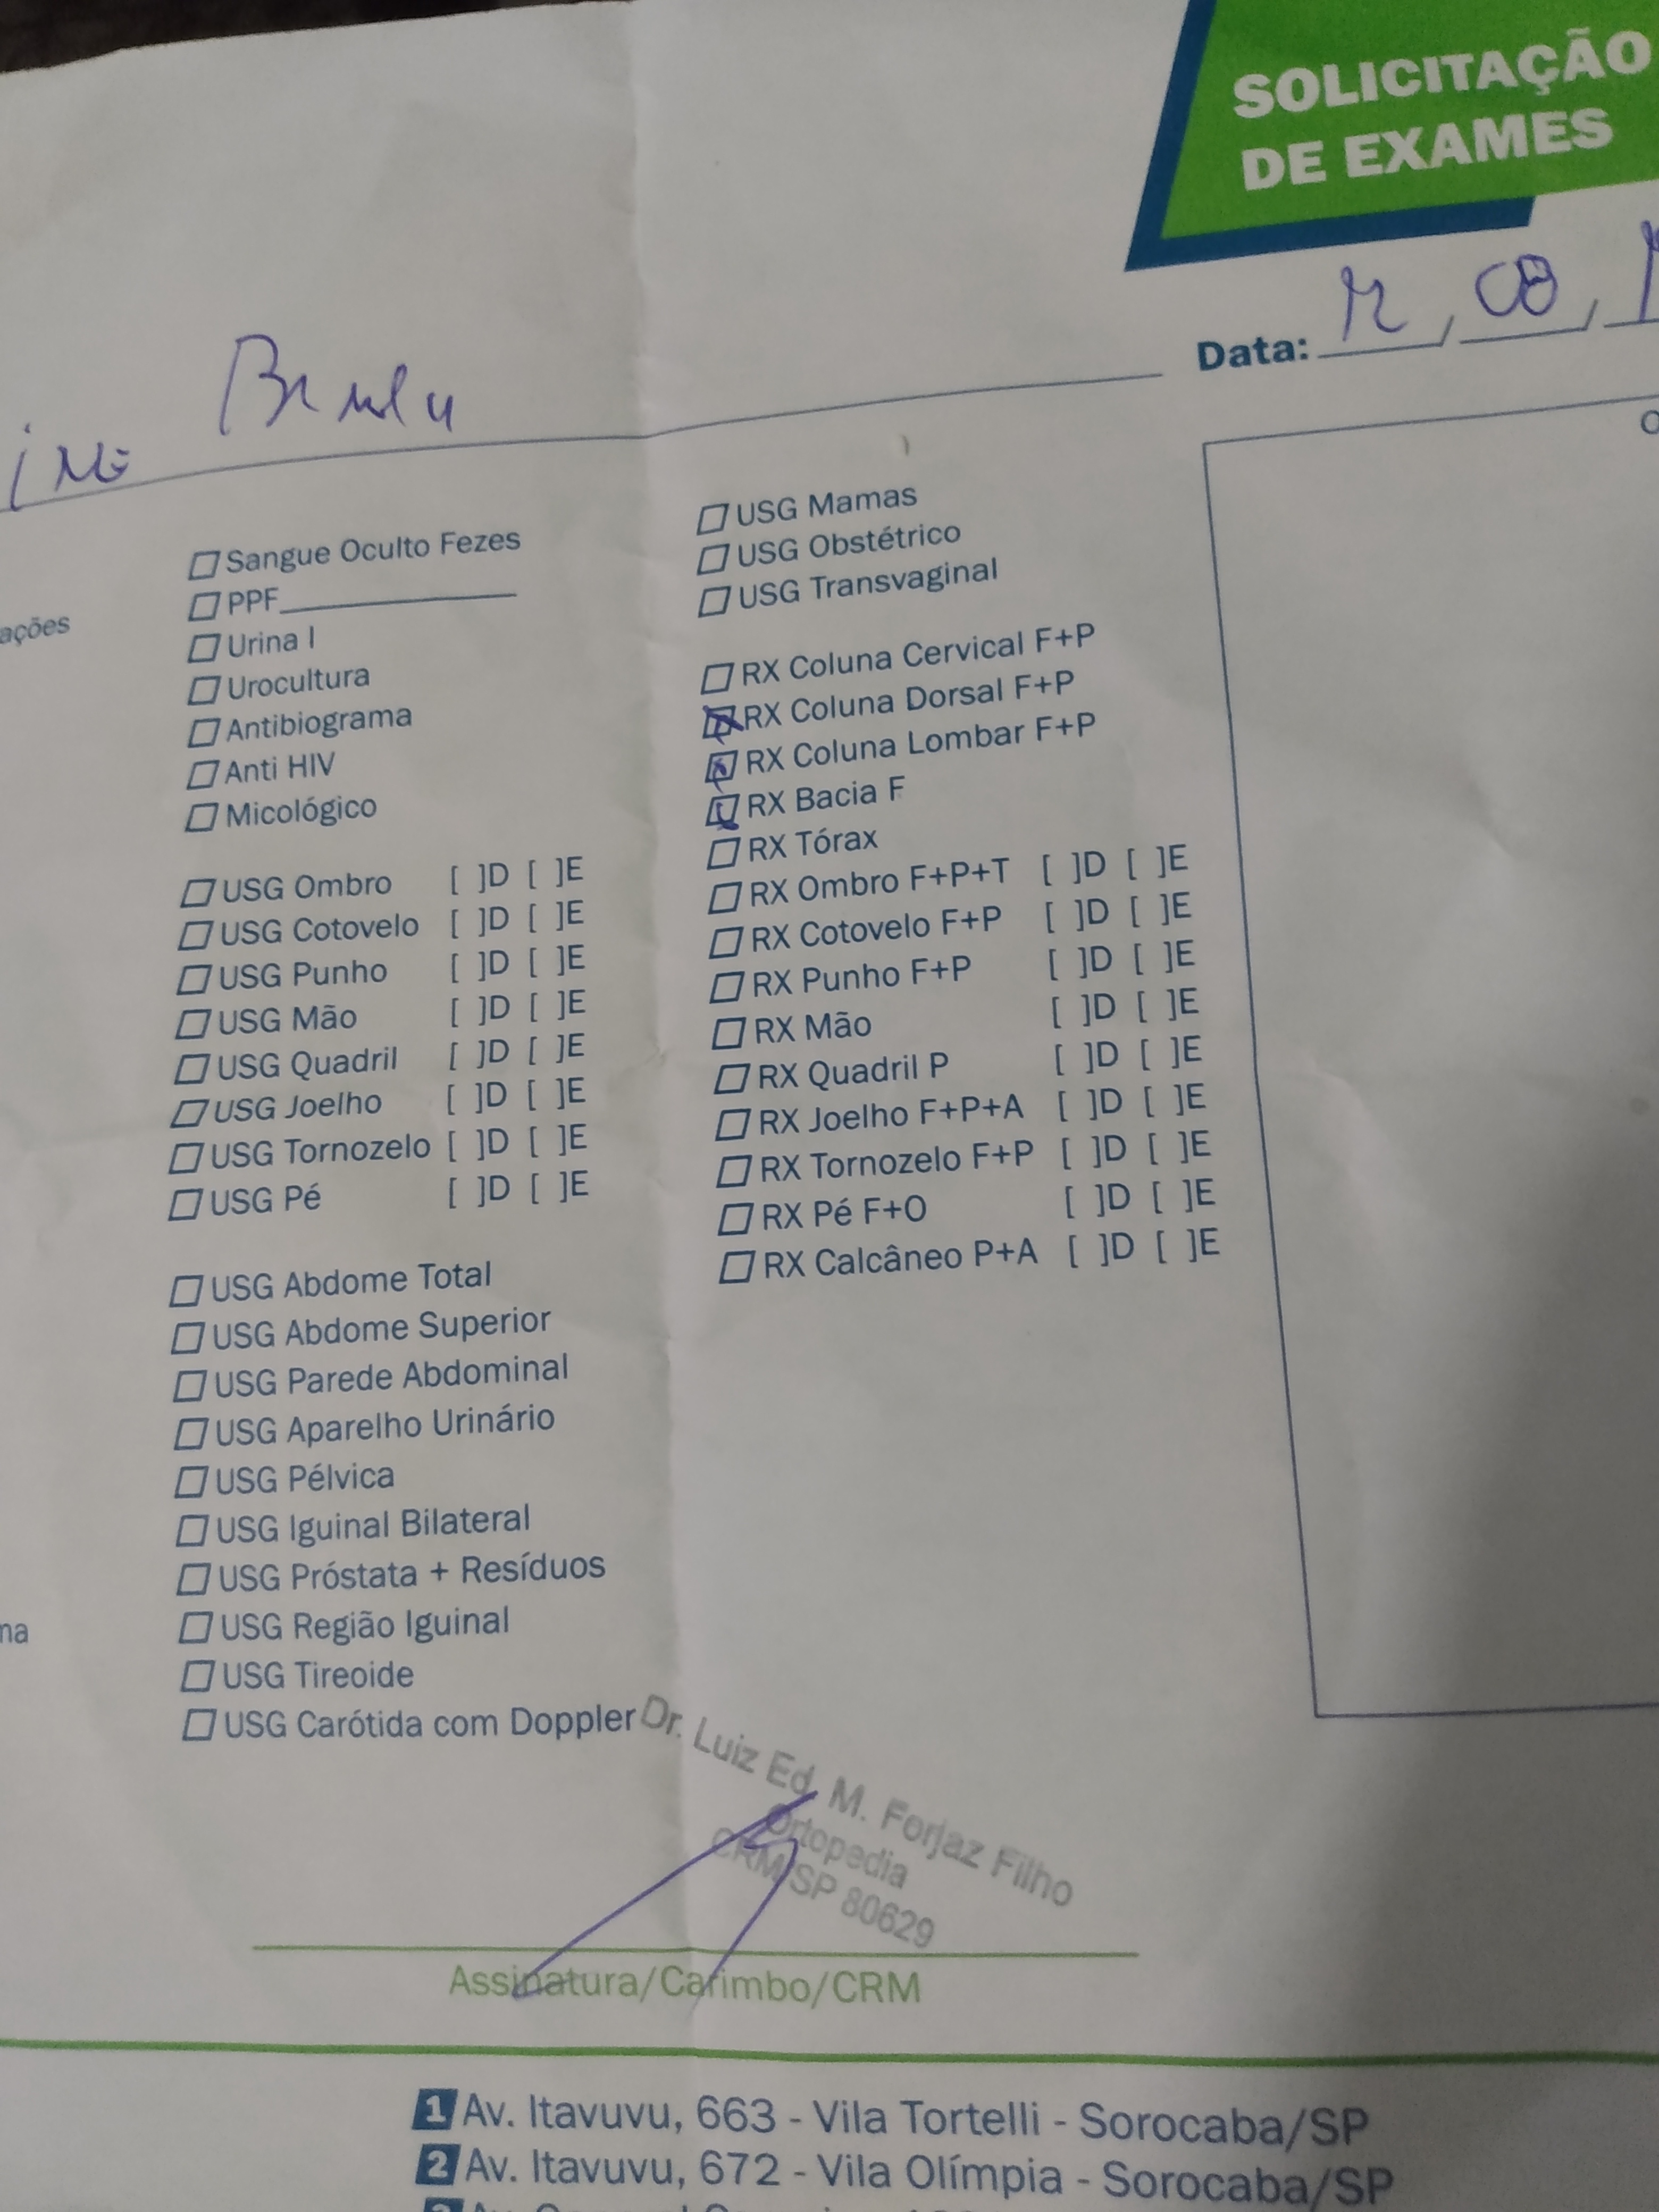 SOLICITAÇÃO
DE EXAMES
Data:
ações
Sangue Oculto Fezes
PPF
Urina I
Urocultura
Antibiograma
Anti HIV
Micológico
USG Ombro [ ]D [ ]E
USG Cotovelo [ ]D [ ]E
USG Punho [ ]D [ ]E
USG Mão [ ]D [ ]E
USG Quadril [ ]D [ ]E
USG Joelho [ ]D [ ]E
USG Tornozelo [ ]D [ ]E
USG Pé [ ]D [ ]E
USG Abdome Total
USG Abdome Superior
USG Parede Abdominal
USG Aparelho Urinário
USG Pélvica
USG Iguinal Bilateral
USG Próstata + Resíduos
USG Região Iguinal
USG Tireoide
USG Carótida com Doppler
USG Mamas
USG Obstétrico
USG Transvaginal
RX Coluna Cervical F+P
RX Coluna Dorsal F+P
RX Coluna Lombar F+P
RX Bacia F
RX Tórax
RX Ombro F+P+T [ ]D [ ]E
RX Cotovelo F+P [ ]D [ ]E
RX Punho F+P [ ]D [ ]E
RX Mão [ ]D [ ]E
RX Quadril P [ ]D [ ]E
RX Joelho F+P+A [ ]D [ ]E
RX Tornozelo F+P [ ]D [ ]E
RX Pé F+O [ ]D [ ]E
RX Calcâneo P+A [ ]D [ ]E
Dr. Luiz Ed. M. Forjaz Filho
Ortopedia
CRM/SP 80629
Assinatura/Carimbo/CRM
1 Av. Itavuvu, 663 - Vila Tortelli - Sorocaba/SP
2 Av. Itavuvu, 672 - Vila Olímpia - Sorocaba/SP